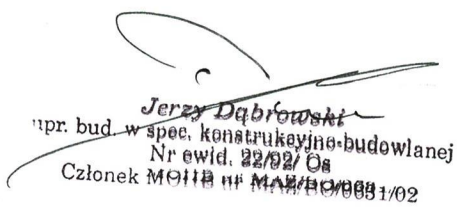 Jerzy Dąbrowski
upr. bud. w spec. konstrukcyjno-budowlanej
Nr ewid. 22/92/ Os
Członek MOIIB nr MAZ/BO/0631/02